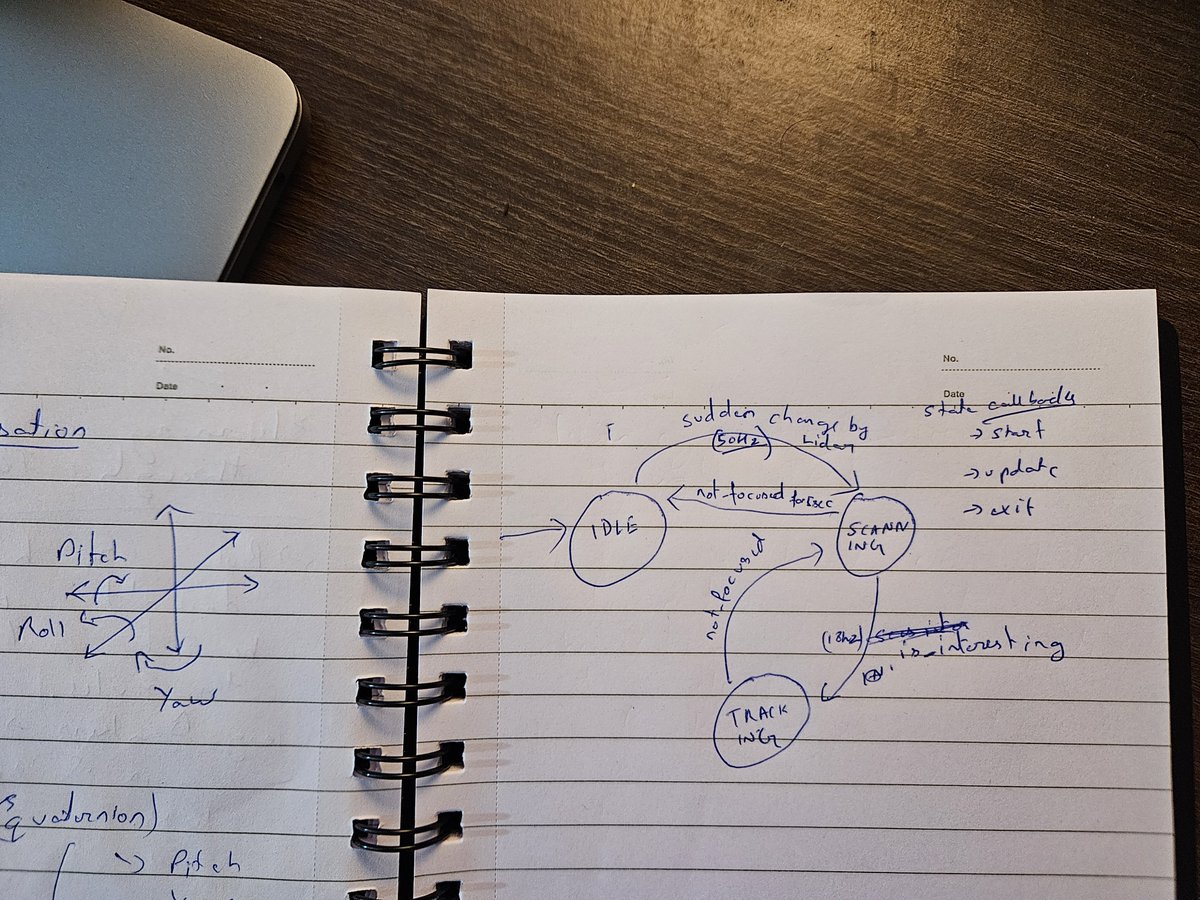 No.
Date
sation
Pitch
Roll
Yaw
quaternion)
→ Pitch
No.
Date
state callbacks
→ start
→ update
→ exit
sudden change by
(50Hz) Lidar
not-focused for
IDLE
SCANN
ING
not-focused
(1Hz)
is_interesting
TRACK
ING